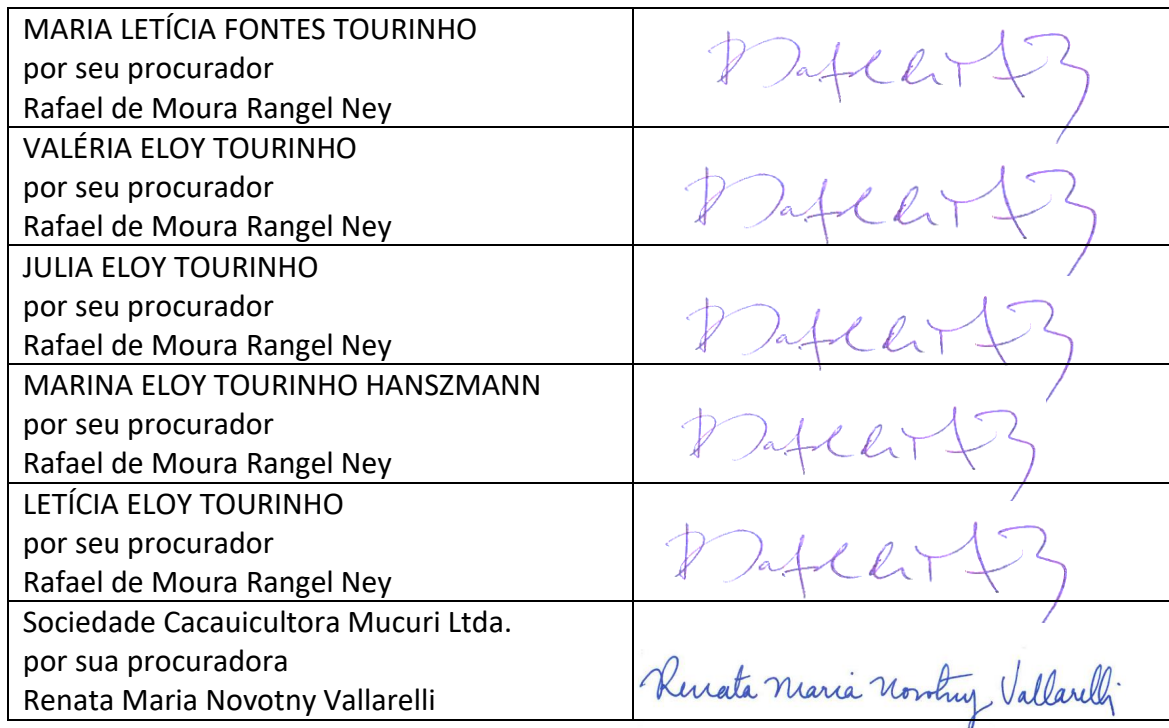 MARIA LETÍCIA FONTES TOURINHO
por seu procurador
Rafael de Moura Rangel Ney
VALÉRIA ELOY TOURINHO
por seu procurador
Rafael de Moura Rangel Ney
JULIA ELOY TOURINHO
por seu procurador
Rafael de Moura Rangel Ney
MARINA ELOY TOURINHO HANSZMANN
por seu procurador
Rafael de Moura Rangel Ney
LETÍCIA ELOY TOURINHO
por seu procurador
Rafael de Moura Rangel Ney
Sociedade Cacauicultora Mucuri Ltda.
por sua procuradora
Renata Maria Novotny Vallarelli
Renata Maria Novotny Vallarelli